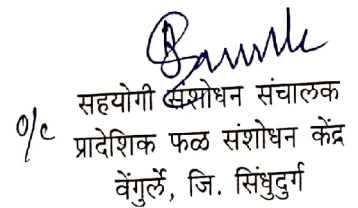 सहयोगी संशोधन संचालक
o/c प्रादेशिक फळ संशोधन केंद्र
वेंगुर्ले, जि. सिंधुदुर्ग